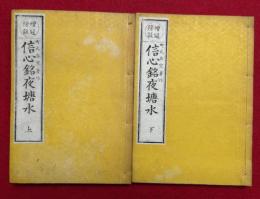 増冠
傍註
信心銘夜塘水
上
増冠
傍註
信心銘夜塘水
下